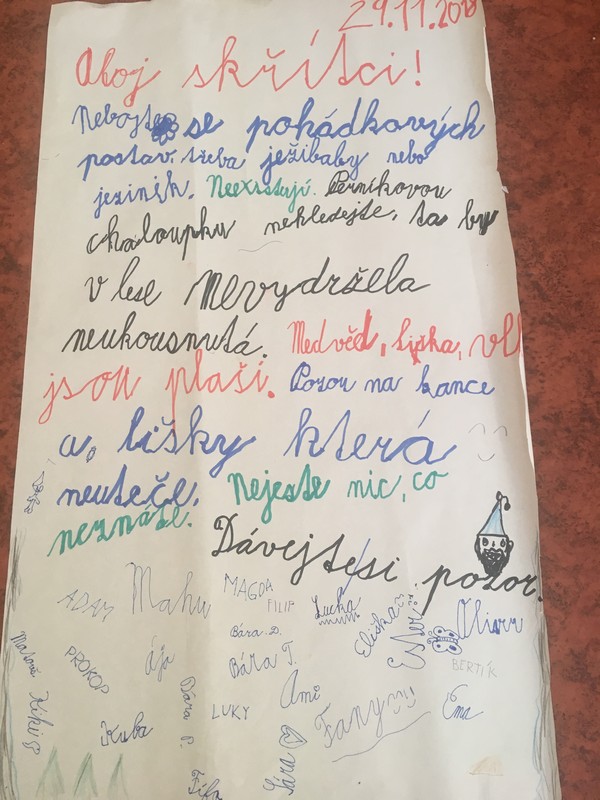 29.11.2018
Ahoj skřítci!
Nebojte se pohádkových
postav. třeba ježibaby nebo
jezinik. Neexistují. Perníkovou
chaloupku nehledejte, ta by
v lese nevydržela
neukousnutá. Medvěd, liška, vlk
jsou plaší. Pozor na kance
a lišky která
neuteče. Nejezte nic, co
neznáte.
Dávejte si pozor.
ADAM Mahu MAGDA
FILIP Lucka Eliška Ester Oliver
Bára D.
PROKOP Ája Bára T. BERTÍK
Kiki Bára P. Ami
LUKY Fany Ema
Kuba
Sára